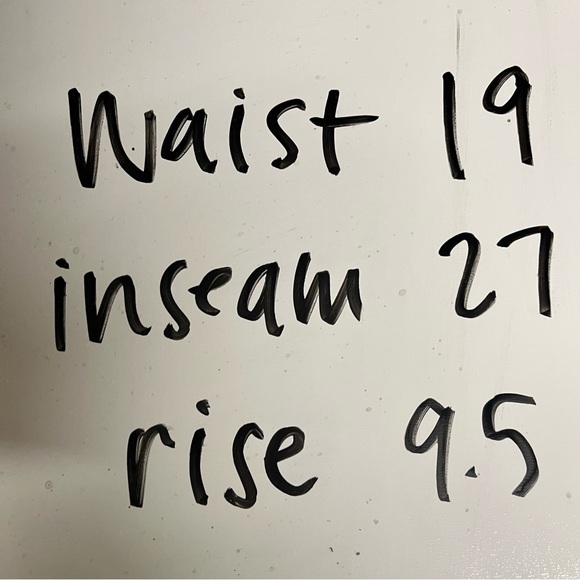 Waist 19
inseam 27
rise 9.5